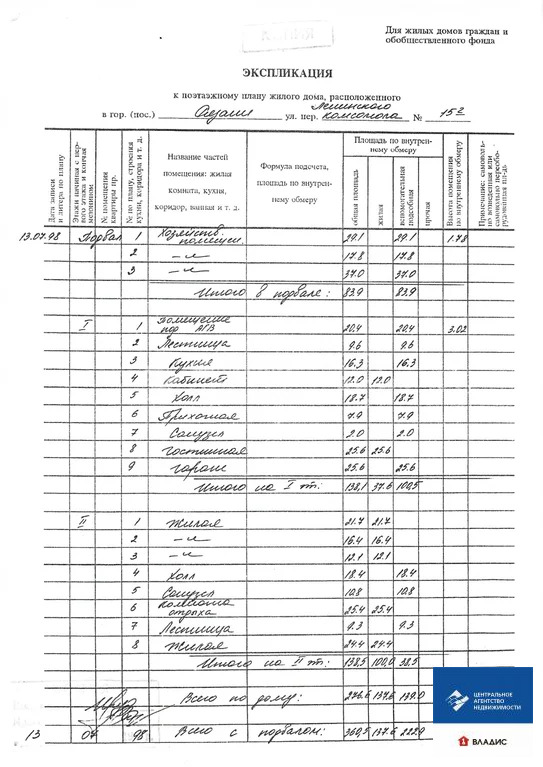 Для жилых домов граждан и
обобществленного фонда
ЭКСПЛИКАЦИЯ
к поэтажному плану жилого дома, расположенного
в гор. (пос.) Рязани ул. пер. Ленинского комсомола № 15²
Дата записи и литера по плану
Этажи начиная с первого этажа и кончая мезонином
№ помещения квартиры пр.
№ по плану, строения кухня, коридор и т. д.
Название частей помещения: жилая комната, кухня, коридор, ванная и т. д.
Формула подсчета, площадь по внутреннему обмеру
Площадь по внутреннему обмеру
общая площадь
жилая
вспомогательная подсобная
прочая
Высота помещения по внутреннему обмеру
Примечание:
13.07.98 Подвал 1 Хозяйств. помещен. 29.1 29.1 1.78
2 –„– 17.8 17.8
3 –„– 37.0 37.0
Итого в подвале: 83.9 83.9
I 1 Помещение под АГВ 20.4 20.4 3.02
2 Лестница 9.6 9.6
3 Кухня 16.3 16.3
4 Кабинет 12.0 12.0
5 Холл 18.7 18.7
6 Прихожая 7.9 7.9
7 Санузел 2.0 2.0
8 Гостинная 25.6 25.6
9 гараж 25.6 25.6
Итого на I эт: 138,1 37.6 100,5
II 1 Жилая 21.7 21.7
2 –„– 16.4 16.4
3 –„– 12.1 12.1
4 Холл 18.4 18.4
5 Санузел 10.8 10.8
6 Комната отдыха 25.4 25.4
7 Лестница 9.3 9.3
8 Жилая 24.4 24.4
Итого на II эт: 138,5 100,0 38.5
Всего по дому: 276.6 137.6 139.0
13 07 98 Всего с подвалом: 360,5 137.6 222.9
ЦЕНТРАЛЬНОЕ
АГЕНТСТВО
НЕДВИЖИМОСТИ
ВЛАДИС